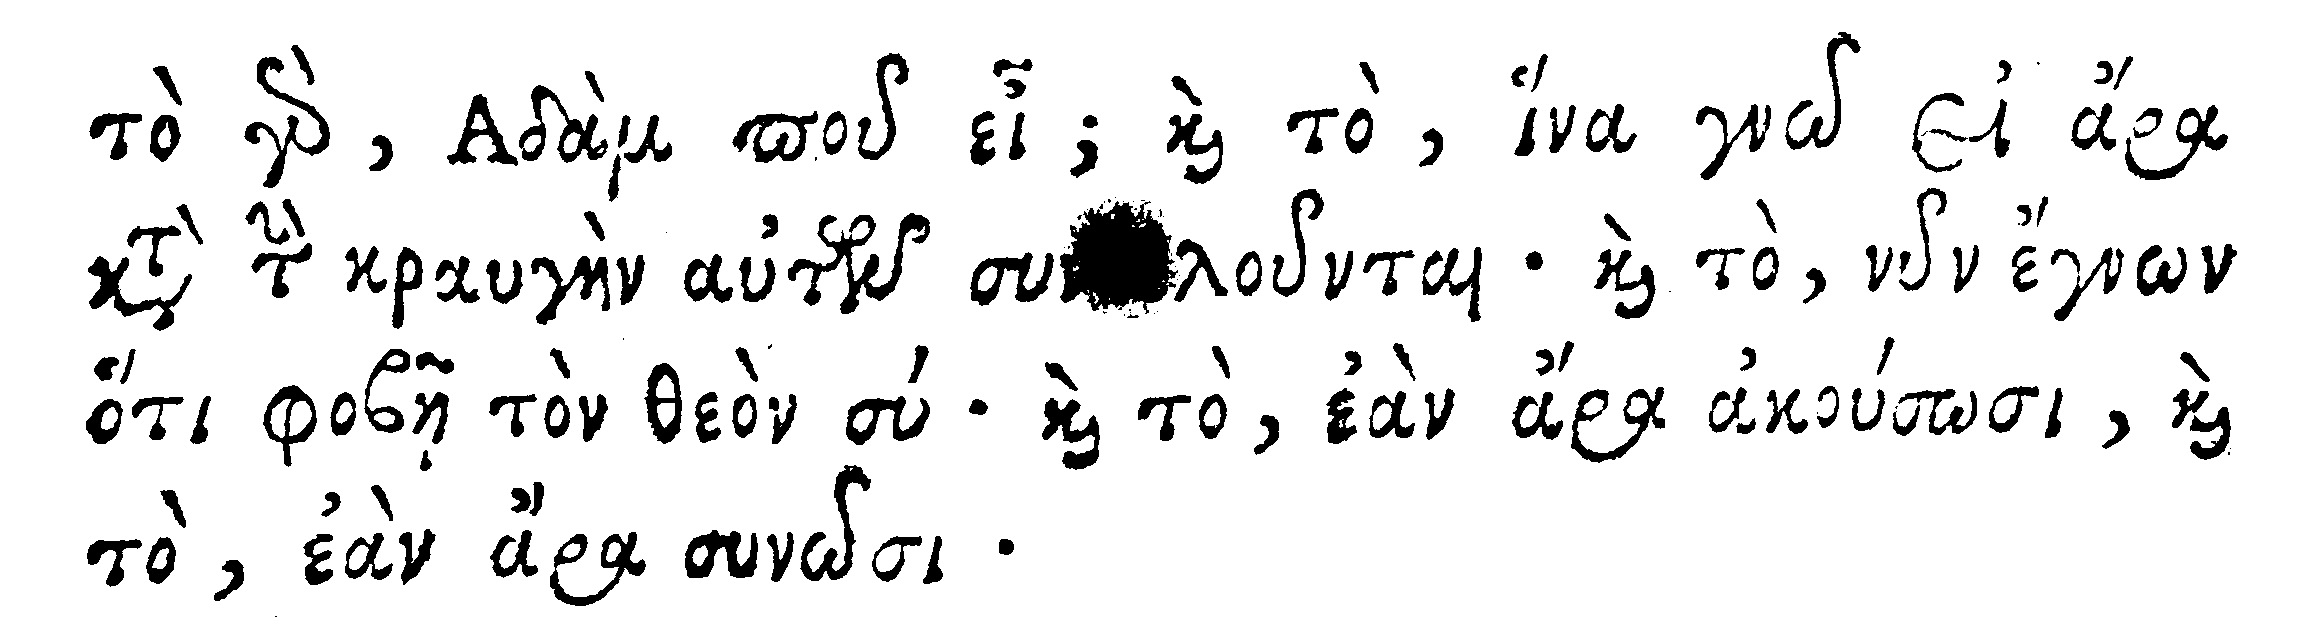 τὸ γὸ, Αδὰμ ποῦ εἶ; καὶ τὸ, ἵνα γνῶ εἰ ἄρα
κατὰ τὴν κραυγὴν αὐτῶν · καὶ τὸ, νῦν ἔγνων
ὅτι φοβῇ τὸν θεὸν σύ · καὶ τὸ, ἐὰν ἄρα ἀκούσωσι, καὶ
τὸ, ἐὰν ἄρα συνῶσι ·